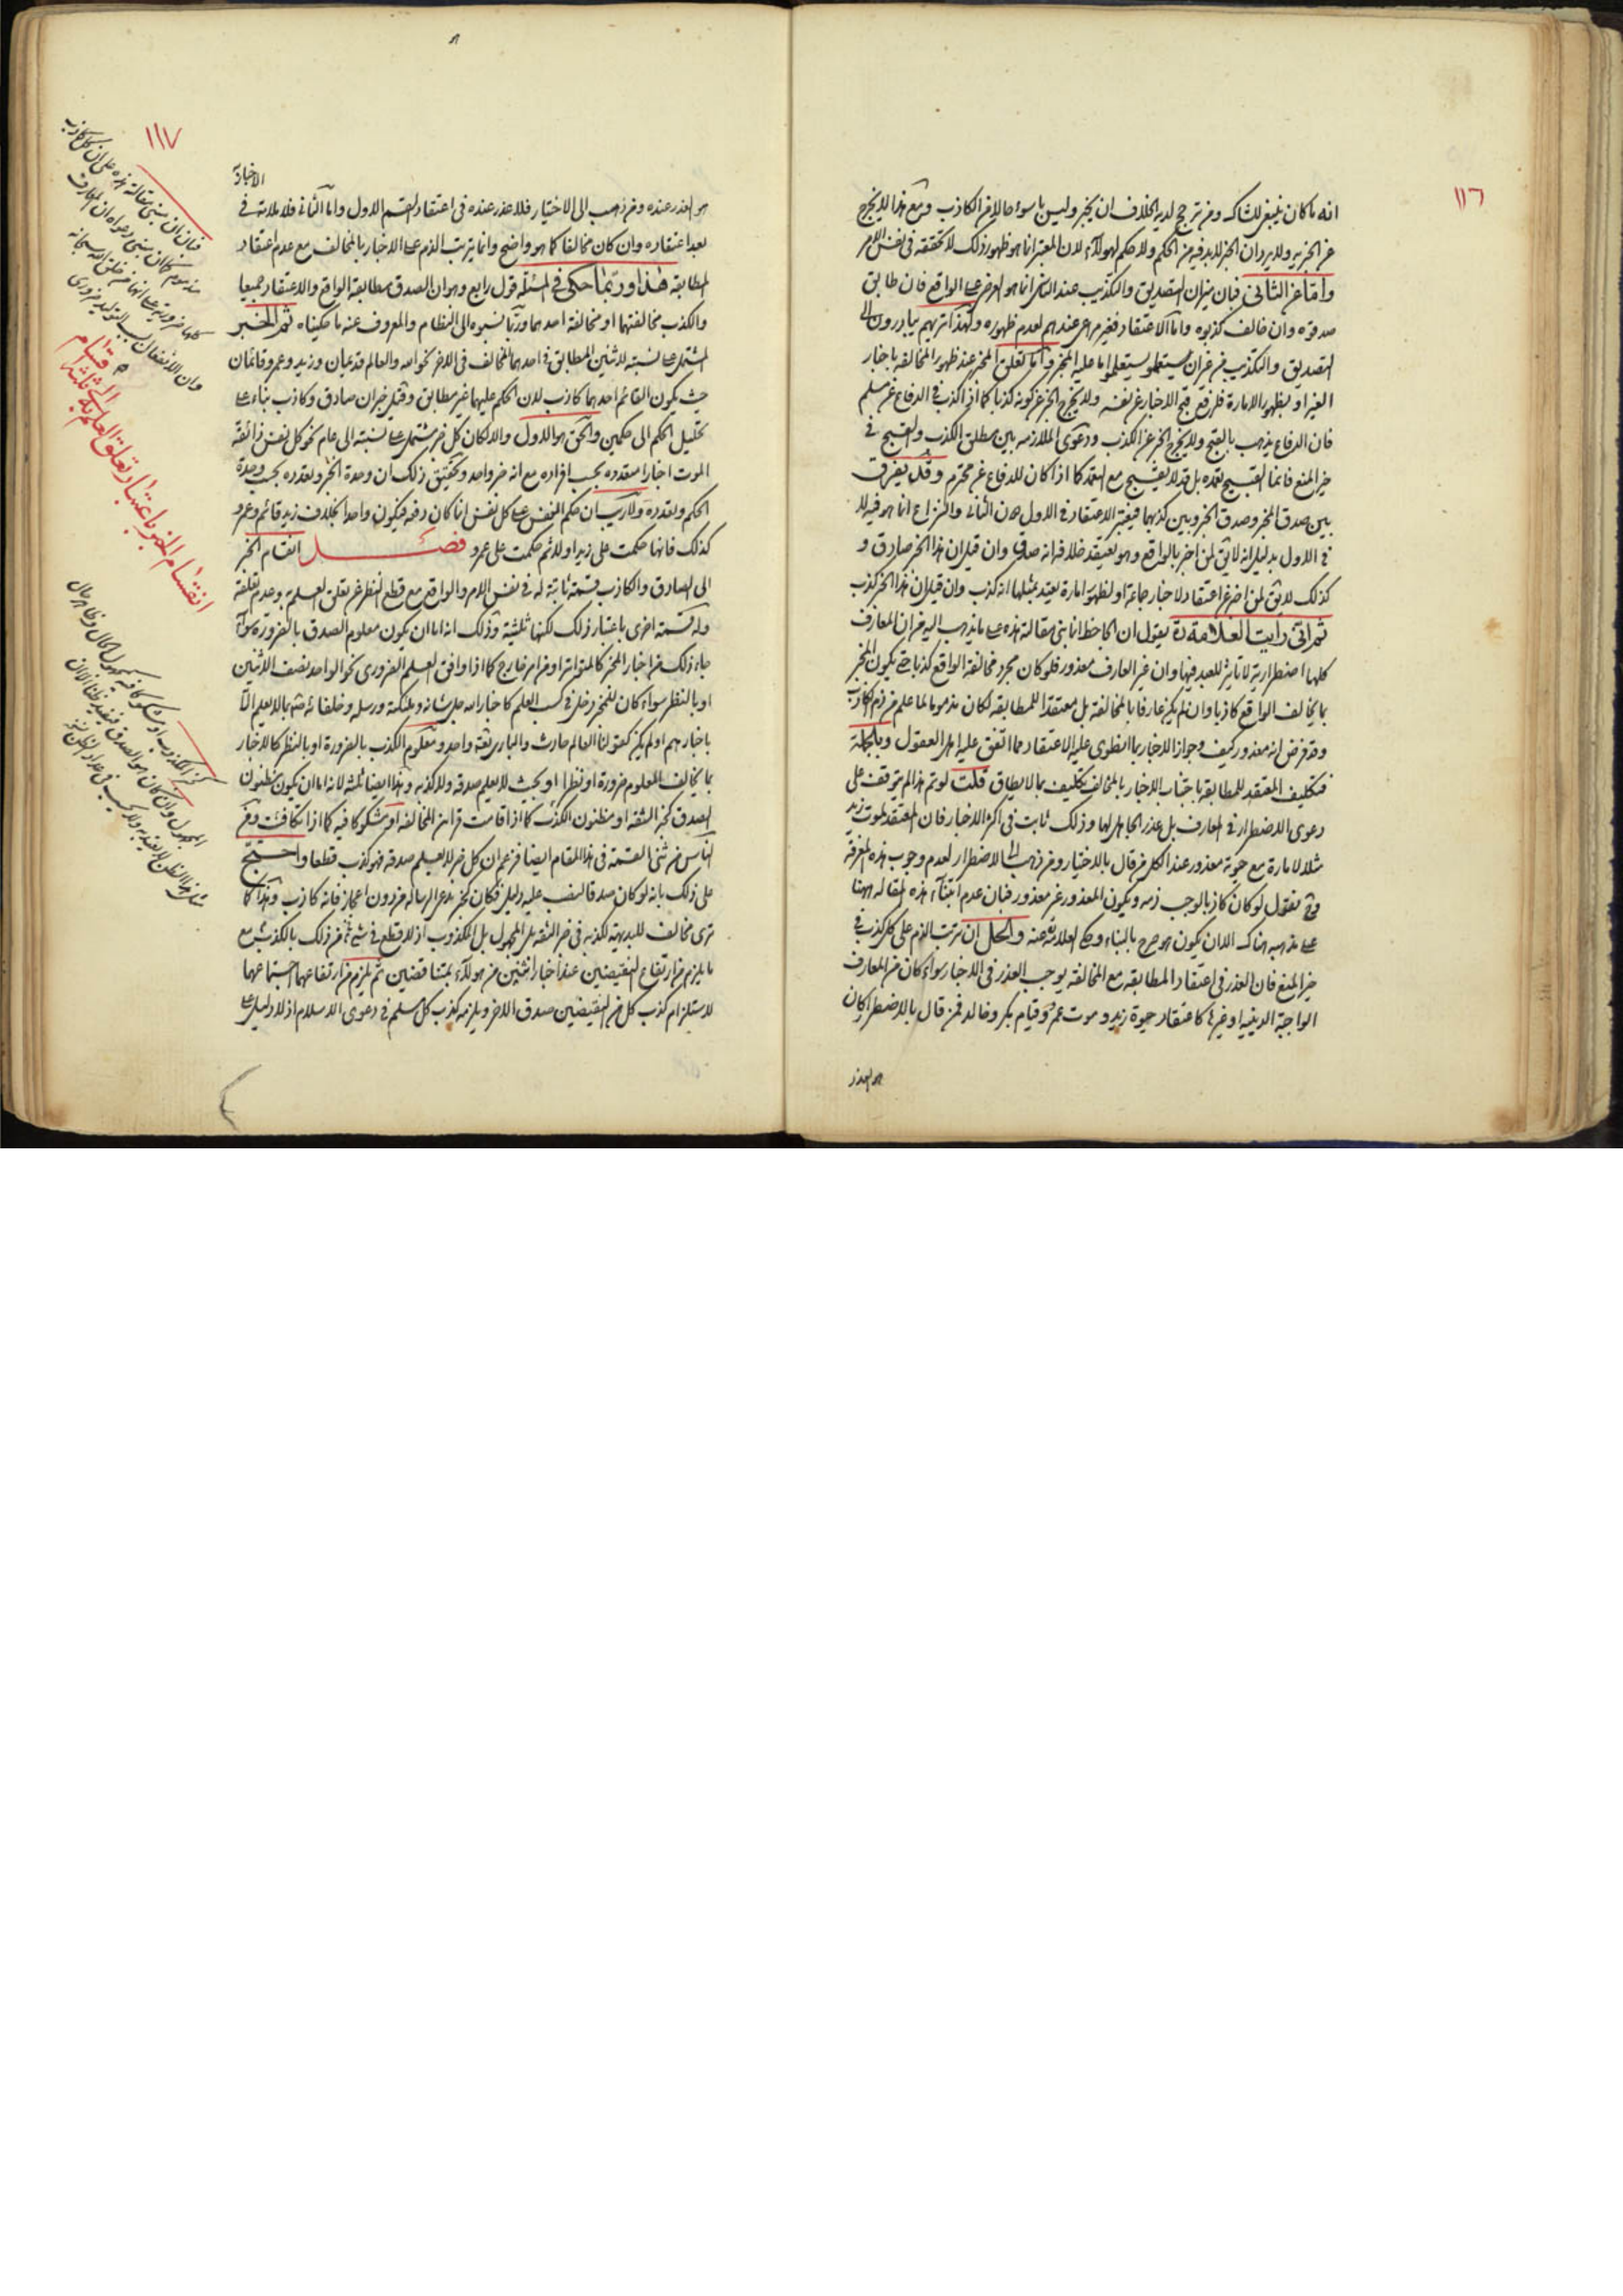 ١١٦
انه ما كان ينبغي للشاك ومن ترجح لديه الخلاف ان يخبر وليس ما سواهما الا من الكاذب ومع هذا لا يخرج
عن الخبرية ولا يرد ان الخبر لا بد فيه من الحكم ولا حكم لهؤلاء لان المعتبر انما هو ظهور ذلك لا تحققه في نفس الامر
واما عن الثاني فبان ميزان التصديق والتكذيب عند الناس انما هو العرض على الواقع فان طابق
صدقوه وان خالف كذبوه واما الاعتقاد فغير مرعى عندهم لعدم ظهوره ولهذا تريهم يبادرون الى
التصديق والتكذيب من غير ان يستعلموا ما عليه المخبر واما تعلق المخبر عند ظهور المخالفة باخبار
الغير او بظهور الامارة فلرفع قبح الاخبار عن نفسه ولا يخرج الخبر عن كونه كذبا كما في الكذب في الدفاع عن مسلم
فان الدفاع يذهب بالقبح ولا يخرج الخبر عن الكذب ودعوى الملازمة بين مطلق الكذب والقبيح في
حيز المنع فانما القبيح تعمده بل قد لا يقبح مع التعمد كما اذا كان للدفاع عن محترم وقد يفرق
بين صدق المخبر وصدق الخبر وبين كذبهما فيعتبر الاعتقاد في الاول دون الثاني والنزاع انما هو فيه لا
في الاول بدليل انه لا يق لمن اخبر بالواقع وهو يعتقد خلافه انه صدق وان قيل ان هذا الخبر صادق و
كذلك لا يق لمن اخبر عن اعتقاد لاخبار جماعة او لظهور امارة يعتد بمثلها انه كذب وان قيل ان هذا الخبر كذب
ثم انى رايت العلامة ره يقول ان الجاحظ انما بنى مقالته هذه على ما يذهب اليه من ان المعارف
كلها اضطرارية لا تاثير للعبد فيها وان غير العارف معذور فلو كان مجرد مخالفة الواقع كذبا حتى يكون المخبر
بما يخالف الواقع كاذبا وان لم يكن عارفا بالمخالفة بل معتقدا للمطابقة لكان مذموما لما علم من ذم الكاذب
وقد فرض انه معذور كيف وجواز الاخبار بما انطوى عليه الاعتقاد مما اتفق عليه اهل العقول وبالجملة
فتكليف المعتقد للمطابقة باجتناب الاخبار بالمخالف تكليف بما لا يطاق قلت لو تم هذا لم يتوقف على
دعوى الاضطرار في المعارف بل عذر الجاهل لها وذلك ثابت في اكثر الاخبار فان المعتقد لموت زيد
مثلا لامارة مع حيوته معذور عند الكل من قال بالاختيار ومن ذهب الى الاضطرار لعدم وجوب هذه المعرفة
وح نقول لو كان كاذبا لوجب ذمه ويكون المعذور غير معذور فبان عدم ابتناء هذه المقالة ههنا
على مذهبه هناك الا ان يكون هو صرح بالبناء وحكاه العلامة عنه والحل ان ترتب الذم على كل كذب في
حيز المنع فان العذر في اعتقاد المطابقة مع المخالفة يوجب العذر في الاخبار سواء كان من المعارف
الواجبة الدينية او غيرها كاعتقاد حيوة زيد وموت عمرو وقيام بكر وخالد فمن قال بالاضطرار كان
هو العذر
١١٧
الاخبار
هو العذر عنده ومن ذهب الى الاختيار فلا عذر عنده في اعتقاد القسم الاول واما الثاني فلا ملامة في
بعد اعتقاده وان كان مخالفا كما هو واضح وانما يترتب الذم على الاخبار بالمخالف مع عدم اعتقاد
المطابقة هذا وربما حكي في المسئلة قول رابع وهو ان الصدق مطابقة الواقع والاعتقاد جميعا
والكذب مخالفتهما او مخالفة احدهما وربما نسبوه الى النظام والمعروف عنه ما حكيناه ثم الخبر
المشتمل على نسبته لاثنين المطابق في احدهما المخالف في الاخر نحو الله والعالم قديمان وزيد وعمرو قائمان
حيث يكون القائم احدهما كاذب لان الحكم عليهما غير مطابق وقيل خبران صادق وكاذب بناء على
تحليل الحكم الى حكمين والحق هو الاول والا لكان كل خبر مشتمل على نسبته الى عام نحو كل نفس ذائقة
الموت اخبارا متعددة بحسب افراده مع انه خبر واحد وتحقيق ذلك ان وحدة الخبر وتعدده بحسب وحدة
الحكم وتعدده ولا ريب ان حكم النفس على كل نفس انما كان دفعة فيكون واحدا بخلاف زيد قائم وعمرو
كذلك فانها حكمت على زيد اولا ثم حكمت على عمرو فصل انقسام الخبر
الى الصادق والكاذب قسمة ثابتة له في نفس الامر والواقع مع قطع النظر عن تعلق العلم به وعدم تعلقه
وله قسمة اخرى باعتبار ذلك لكنها ثلثية وذلك انه اما ان يكون معلوم الصدق بالضرورة سواء
جاء ذلك من اخبار المخبر كالمتواتر او من امر خارج كما اذا وافق العلم الضروري نحو الواحد نصف الاثنين
او بالنظر سواء كان للمخبر دخل في كسب العلم كاخبار الله جل شانه وملئكته ورسله وخلفائه حتى بالا علم الا
باخبارهم او لم يكن كقولنا العالم حادث والباري تعه واحد ومعلوم الكذب بالضرورة او بالنظر كالاخبار
بما يخالف المعلوم ضرورة او نظرا او بحيث لا يعلم صدقه ولا كذبه وهذا ايضا ثلثة لانه اما ان يكون مظنون
الصدق كخبر الثقة او مظنون الكذب كما اذا قامت قرائن المخالفة او مشكوكا فيه كما اذا تكافئت ومن
الناس من ثنى القسمة في هذا المقام ايضا فزعم ان كل خبر لا يعلم صدقه فهو كذب قطعا واحتج
على ذلك بانه لو كان صدقا لنصب عليه دليل فكان كخبر مدعي الرسالة من دون اعجاز فانه كاذب وهذا كما
ترى مخالف للبديهة لكذبه في خبر الثقة بل المجهول بل الكذوب اذ لا قطع في شيء من ذلك بالكذب مع
ما يلزم من ارتفاع النقيضين عند اخبار اثنين من هؤلاء بمتناقضين ثم يلزم من ارتفاعهما اجتماعهما
لاستلزام كذب كل من النقيضين صدق الاخر ويلزمه كذب كل مسلم في دعوى الاسلام اذ لا دليل على
فبان ان بنى مقالته هذه على ان كل كاذب
مذموم كان بنى دعواه ان المعارف
كلها ضرورية على انها من خلق الله سبحانه
وان الانفعال بسبب التوليد ضروري
انقسام الخبر باعتبار تعلق العلم به الى ثلثة اقسام
كخبر الكذوب او مشكوكا فيه كمجهول الحال وظاهر حال
المجهول وان كان هو الصدق فيفيد ظنا الا ان